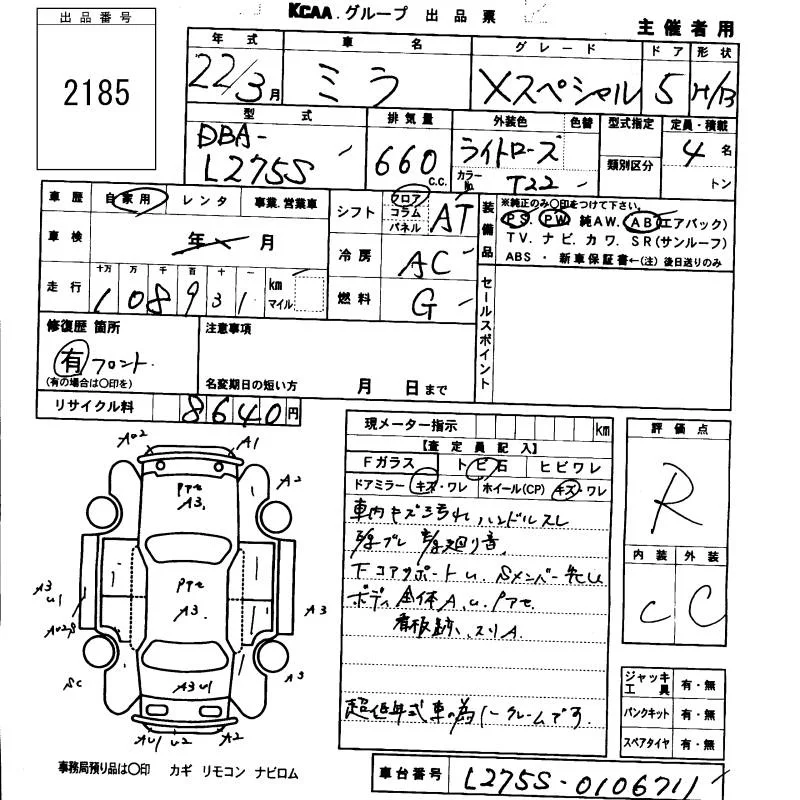 KCAA.グループ 出品票
主催者用
出品番号
2185
年式 車名 グレード ドア 形状
22/3月 ミラ Xスペシャル 5 H/B
型式 排気量 外装色 色替 型式指定 定員・積載
DBA-
L275S 660 c.c. ライトローズ 類別区分 4名
カラーNo. T22 トン
車歴 自家用 レンタ 事業.営業車
車検 年 月
走行 十万 万 千 百 十 一
1 0 8 9 3 1 km マイル
シフト フロア コラム パネル AT
冷房 AC
燃料 G
装備品 ※純正のみ○印をつけて下さい。
PS. PW. 純AW. AB(エアバック)
TV. ナビ. カワ. SR(サンルーフ)
ABS ・ 新車保証書←(注) 後日送りのみ
セールスポイント
修復歴 箇所
有 フロント.
(有の場合は○印を)
注意事項
名変期日の短い方 月 日まで
リサイクル料 8640円
現メーター指示 km
【査定員記入】
Fガラス トビ石 ヒビワレ
ドアミラー キズ・ワレ ホイール(CP) キズ・ワレ
車内キズ汚れ ハンドルスレ
下コアサポートU.
ボディ全体A.U.
看板跡、スリA
超低年式車の為ノークレームです.
評価点
R
内装 外装
C C
ジャッキ 工具 有・無
パンクキット 有・無
スペアタイヤ 有・無
A02 A1
A2
A3
A3
U1
A3
A3
SC A3
A3U1
AU1 U2 A2
事務局預り品は○印 カギ リモコン ナビロム
車台番号 L275S-0106711